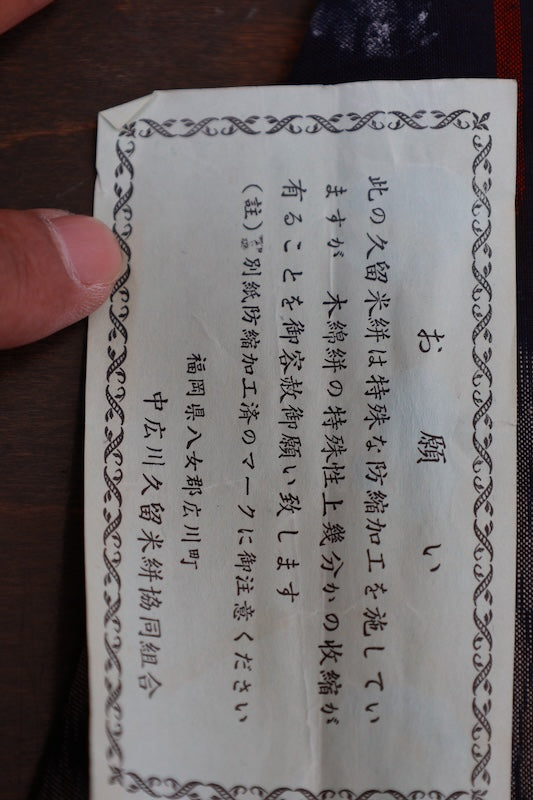 お願い
此の久留米絣は特殊な防縮加工を施してい
ますが 木綿絣の特殊性上幾分かの収縮が
有ることを御容赦御願い致します
(註) 別紙防縮加工済のマークに御注意ください
福岡県八女郡広川町
中広川久留米絣協同組合